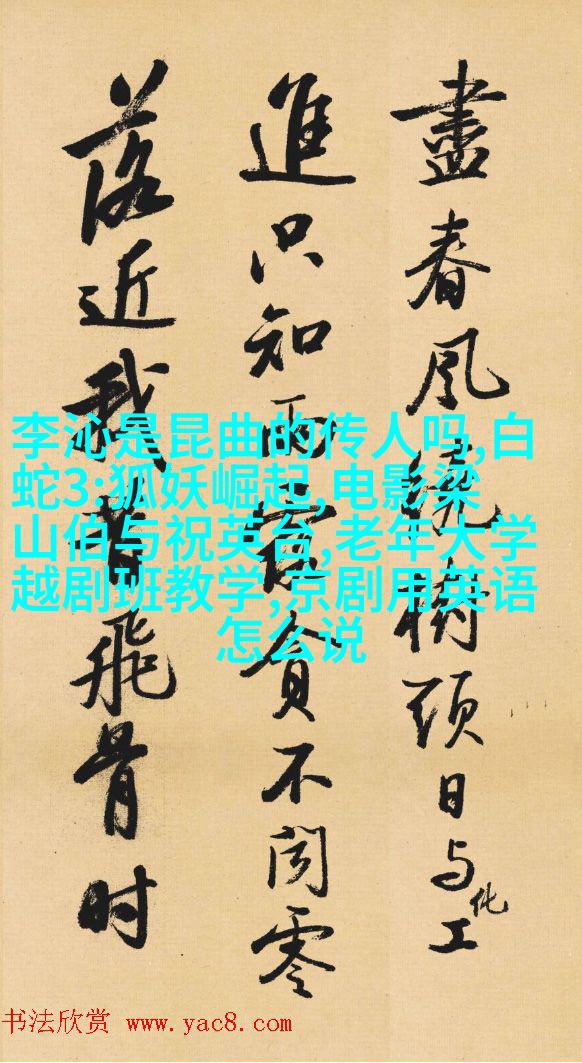 盡春風繞樹頭日与化工
進只知雨露貪不闻零
落近我昔飛骨时
李沁是昆曲的传人吗,白
蛇3:狐妖崛起,电影梁
山伯与祝英台,老年大学
越剧班教学,京剧用英语
怎么说
书法欣赏 www.yac8.com